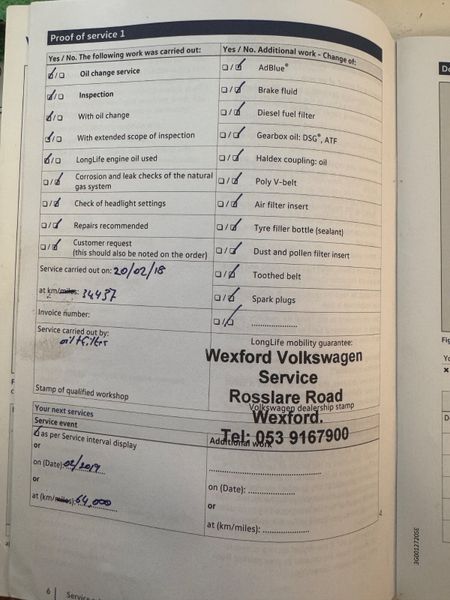 Proof of service 1
Yes / No. The following work was carried out:
Yes / No. Additional work - Change of:
Oil change service
Inspection
With oil change
With extended scope of inspection
LongLife engine oil used
Corrosion and leak checks of the natural
gas system
Check of headlight settings
Repairs recommended
Customer request
(this should also be noted on the order)
AdBlue®
Brake fluid
Diesel fuel filter
Gearbox oil: DSG®, ATF
Haldex coupling: oil
Poly V-belt
Air filter insert
Tyre filler bottle (sealant)
Dust and pollen filter insert
Toothed belt
Spark plugs
Service carried out on: 20/02/18
at km/miles: 34437
Invoice number:
Service carried out by:
oil + filter
Stamp of qualified workshop
LongLife mobility guarantee:
Wexford Volkswagen
Service
Rosslare Road
Volkswagen dealership stamp
Wexford.
Tel: 053 9167900
Your next services
Service event
as per Service interval display
or
on (Date): 02/2019
or
at (km/miles): 64,000
Additional work
on (Date):
or
at (km/miles):
6
3G0012720SE